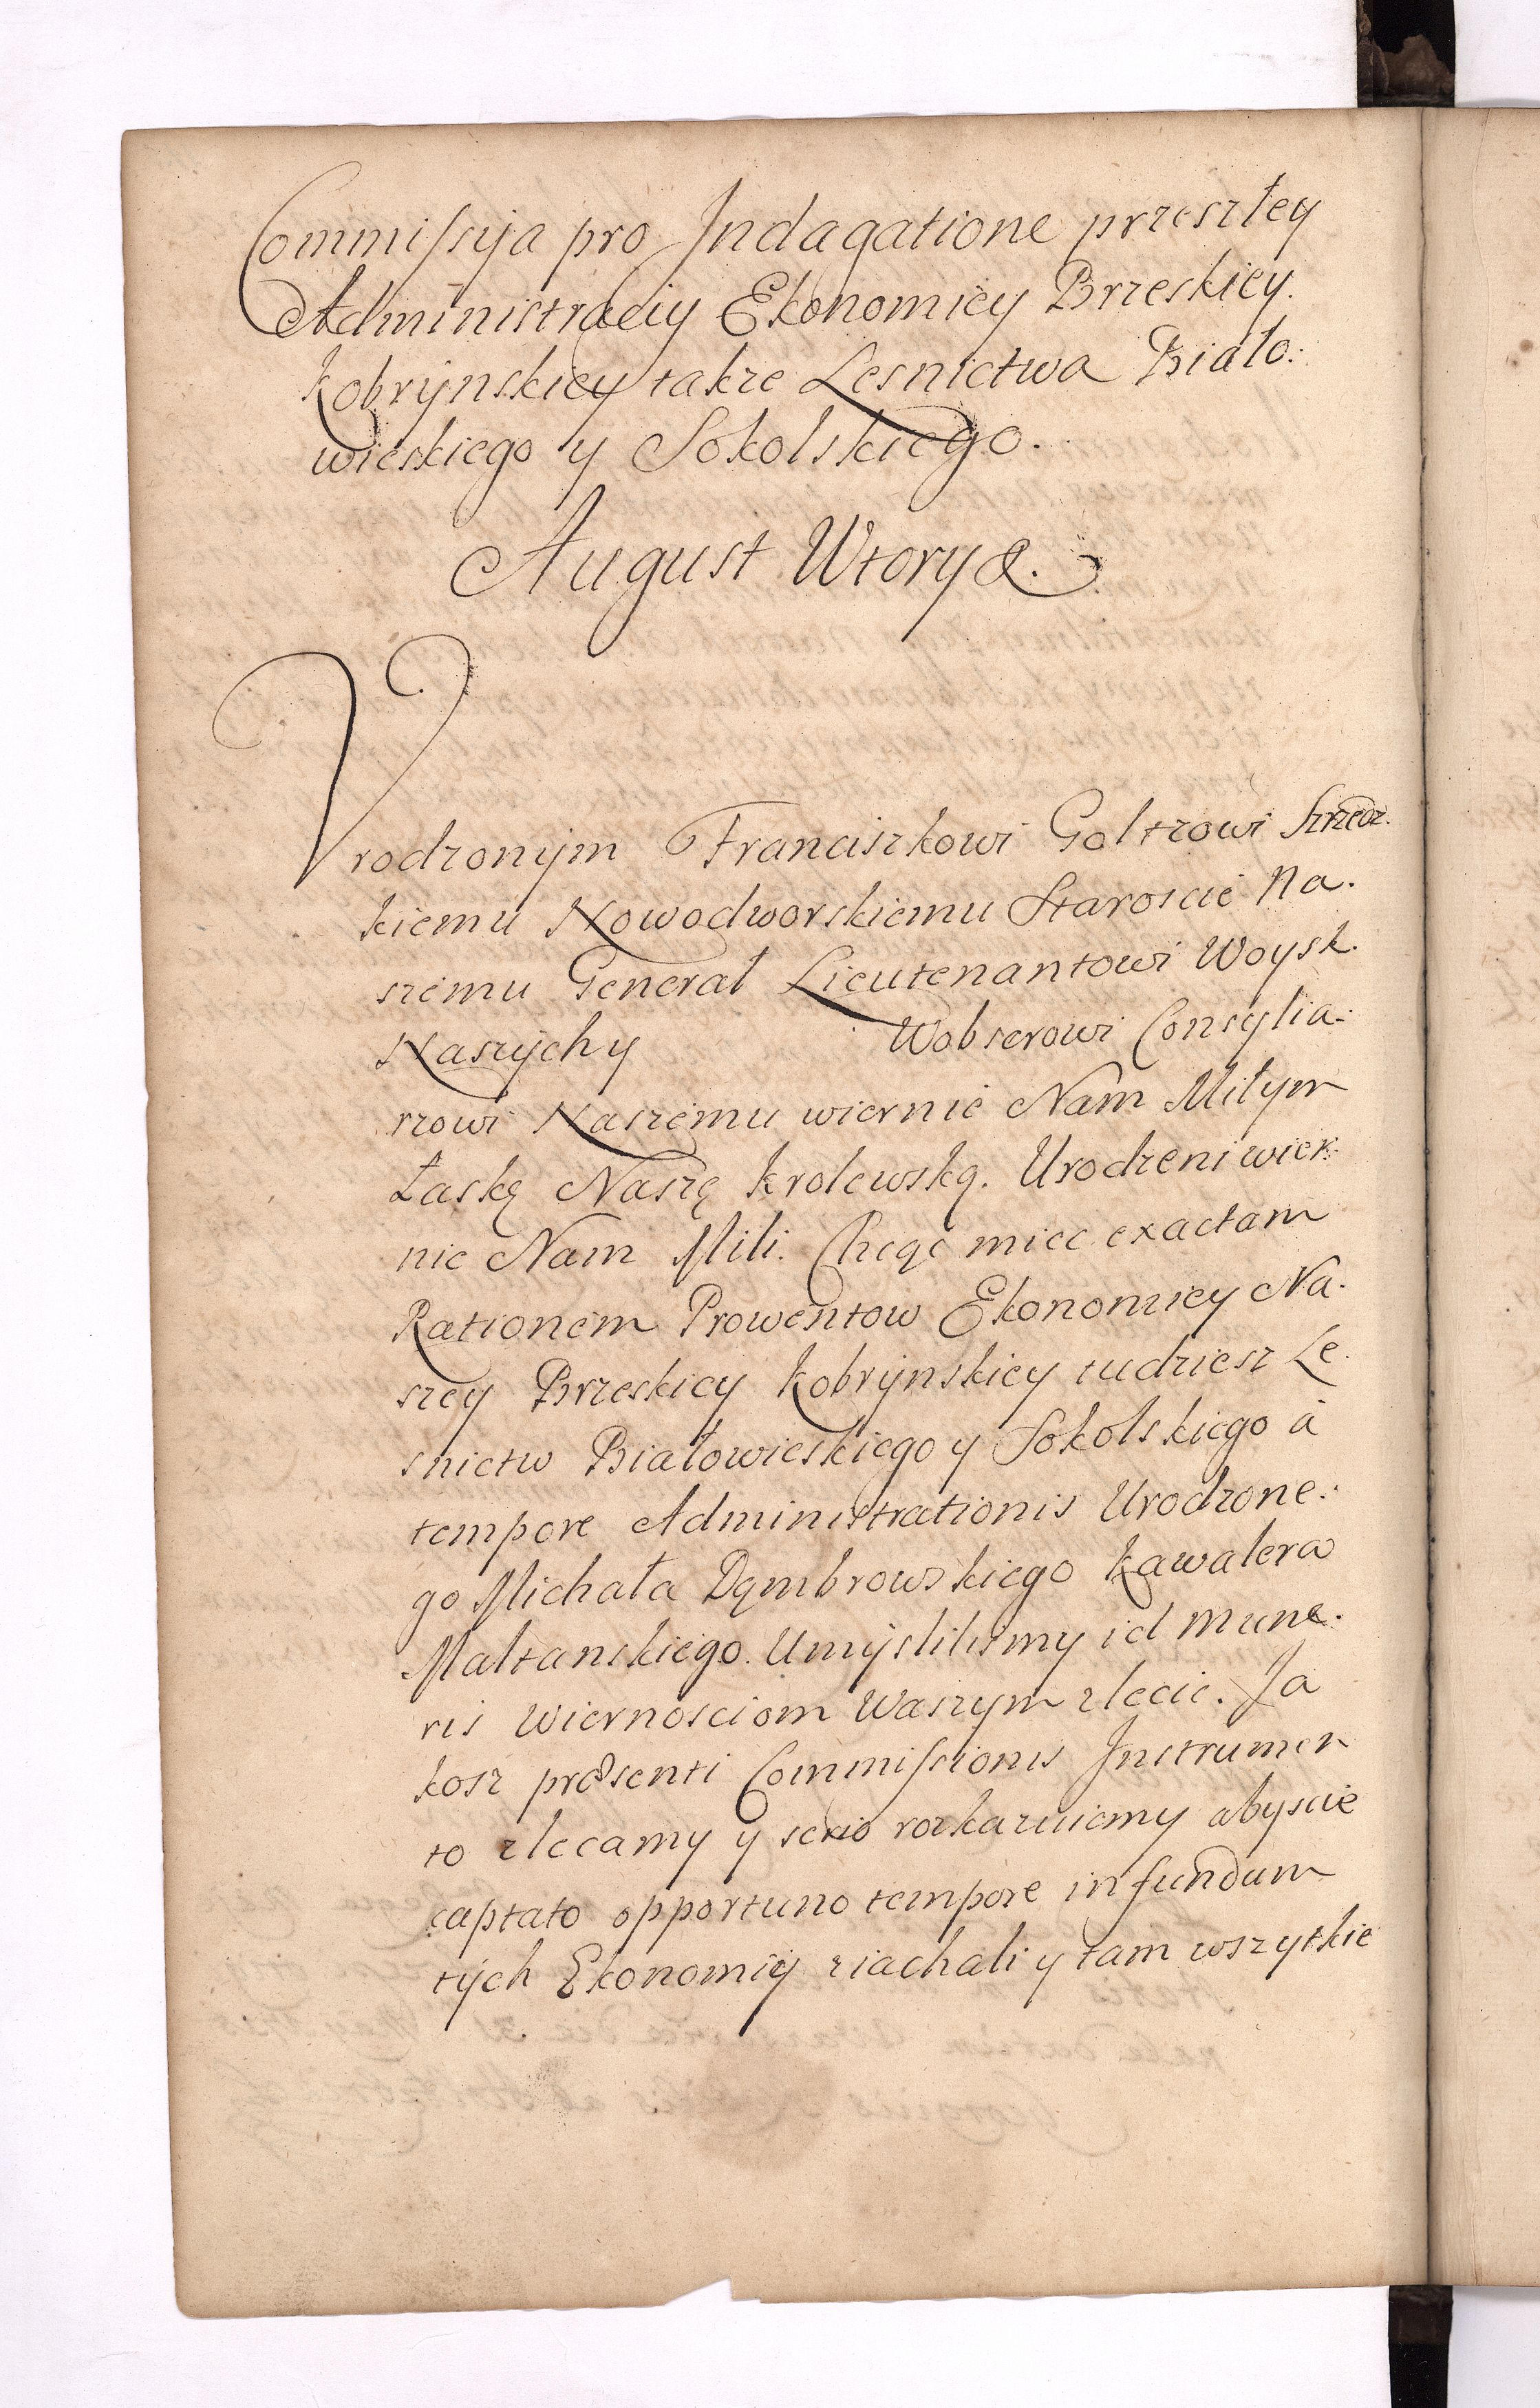 Commissyja pro Indagatione przeszłey
Administraciy Ekonomiey Brzeskiey.
Kobrynskiey takze Lesnictwa Biało:
wieskiego y Sokolskiego.
August Wtory &.
Vrodzonym Franciszkowi Goltzowi Szredz.
kiemu Nowodworskiemu Staroscie Na.
szemu Generał Lieutenantowi Woysk.
Naszych y Wobserowi Consylia:
rzowi Naszemu wiernie Nam Miłym
Łaskę Naszę Krolewską. Urodzeni wier:
nie Nam Mili. Chcąc miec exactam
Rationem Prowentow Ekonomiey Na.
szey Brzeskiey Kobrynskiey tudziesz Le.
snictw Białowieskiego y Sokolskiego à
tempore Administrationis Urodzone:
go Michała Dąmbrowskiego Kawalera
Maltanskiego. Umyslilismy id mune.
ris Wiernosciom Waszym zlecic. Ja
kosz præsenti Commissionis Instrumen
to zlecamy y serio rozkazuiemy abyscie
captato opportuno tempore in fundum
tych Ekonomiy ziachali y tam wszytkie